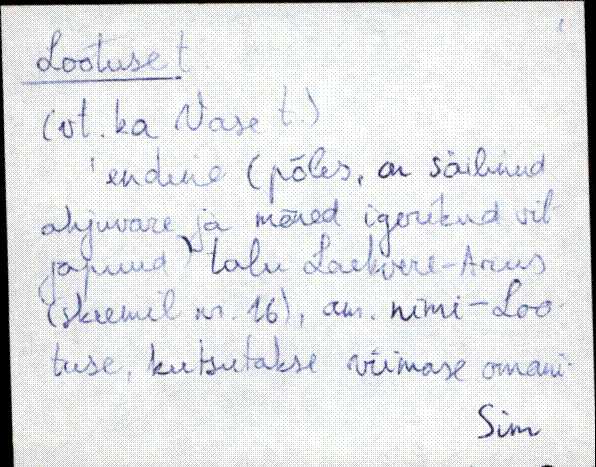 Lootuse t.
(vt. ka Vase t.)
endine (põles, on säilinud
ahjuvare ja mõned igerikud vil
japuud) talu Laekvere-Arus
(skeemil nr. 16), am. nimi - Loo-
tuse, kutsutakse viimase omani-
Sim